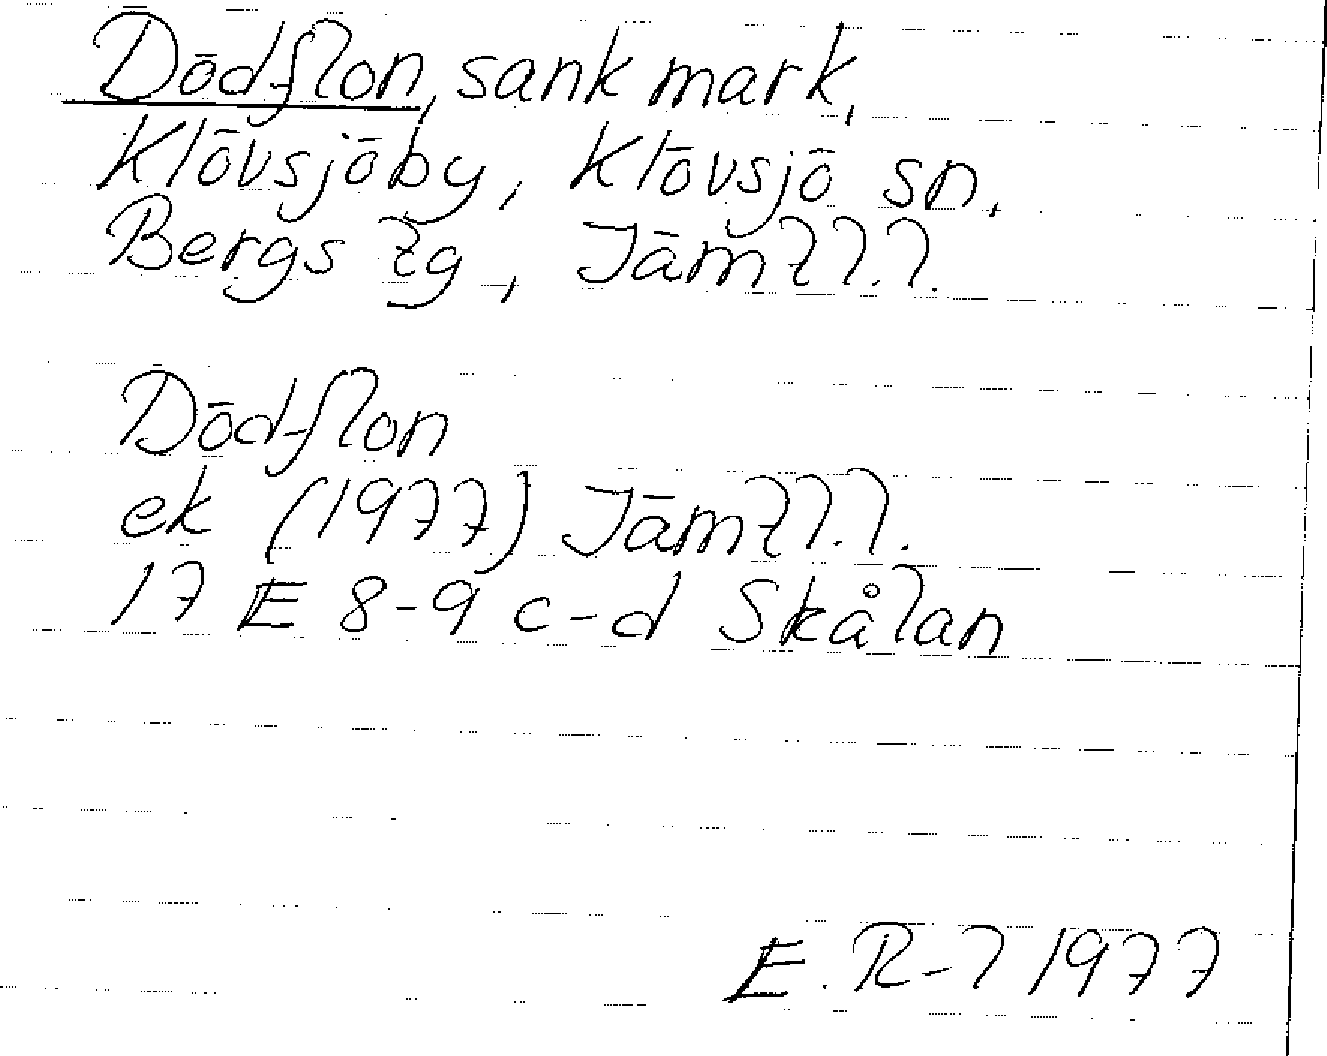 Dödflon, sank mark,
Klövsjöby, Klövsjö sn,
Bergs tg, Jämtl.l.
Dödflon
ek (1977) Jämtl.l.
17 E 8-9 c-d Skålan
E. R-l 1977